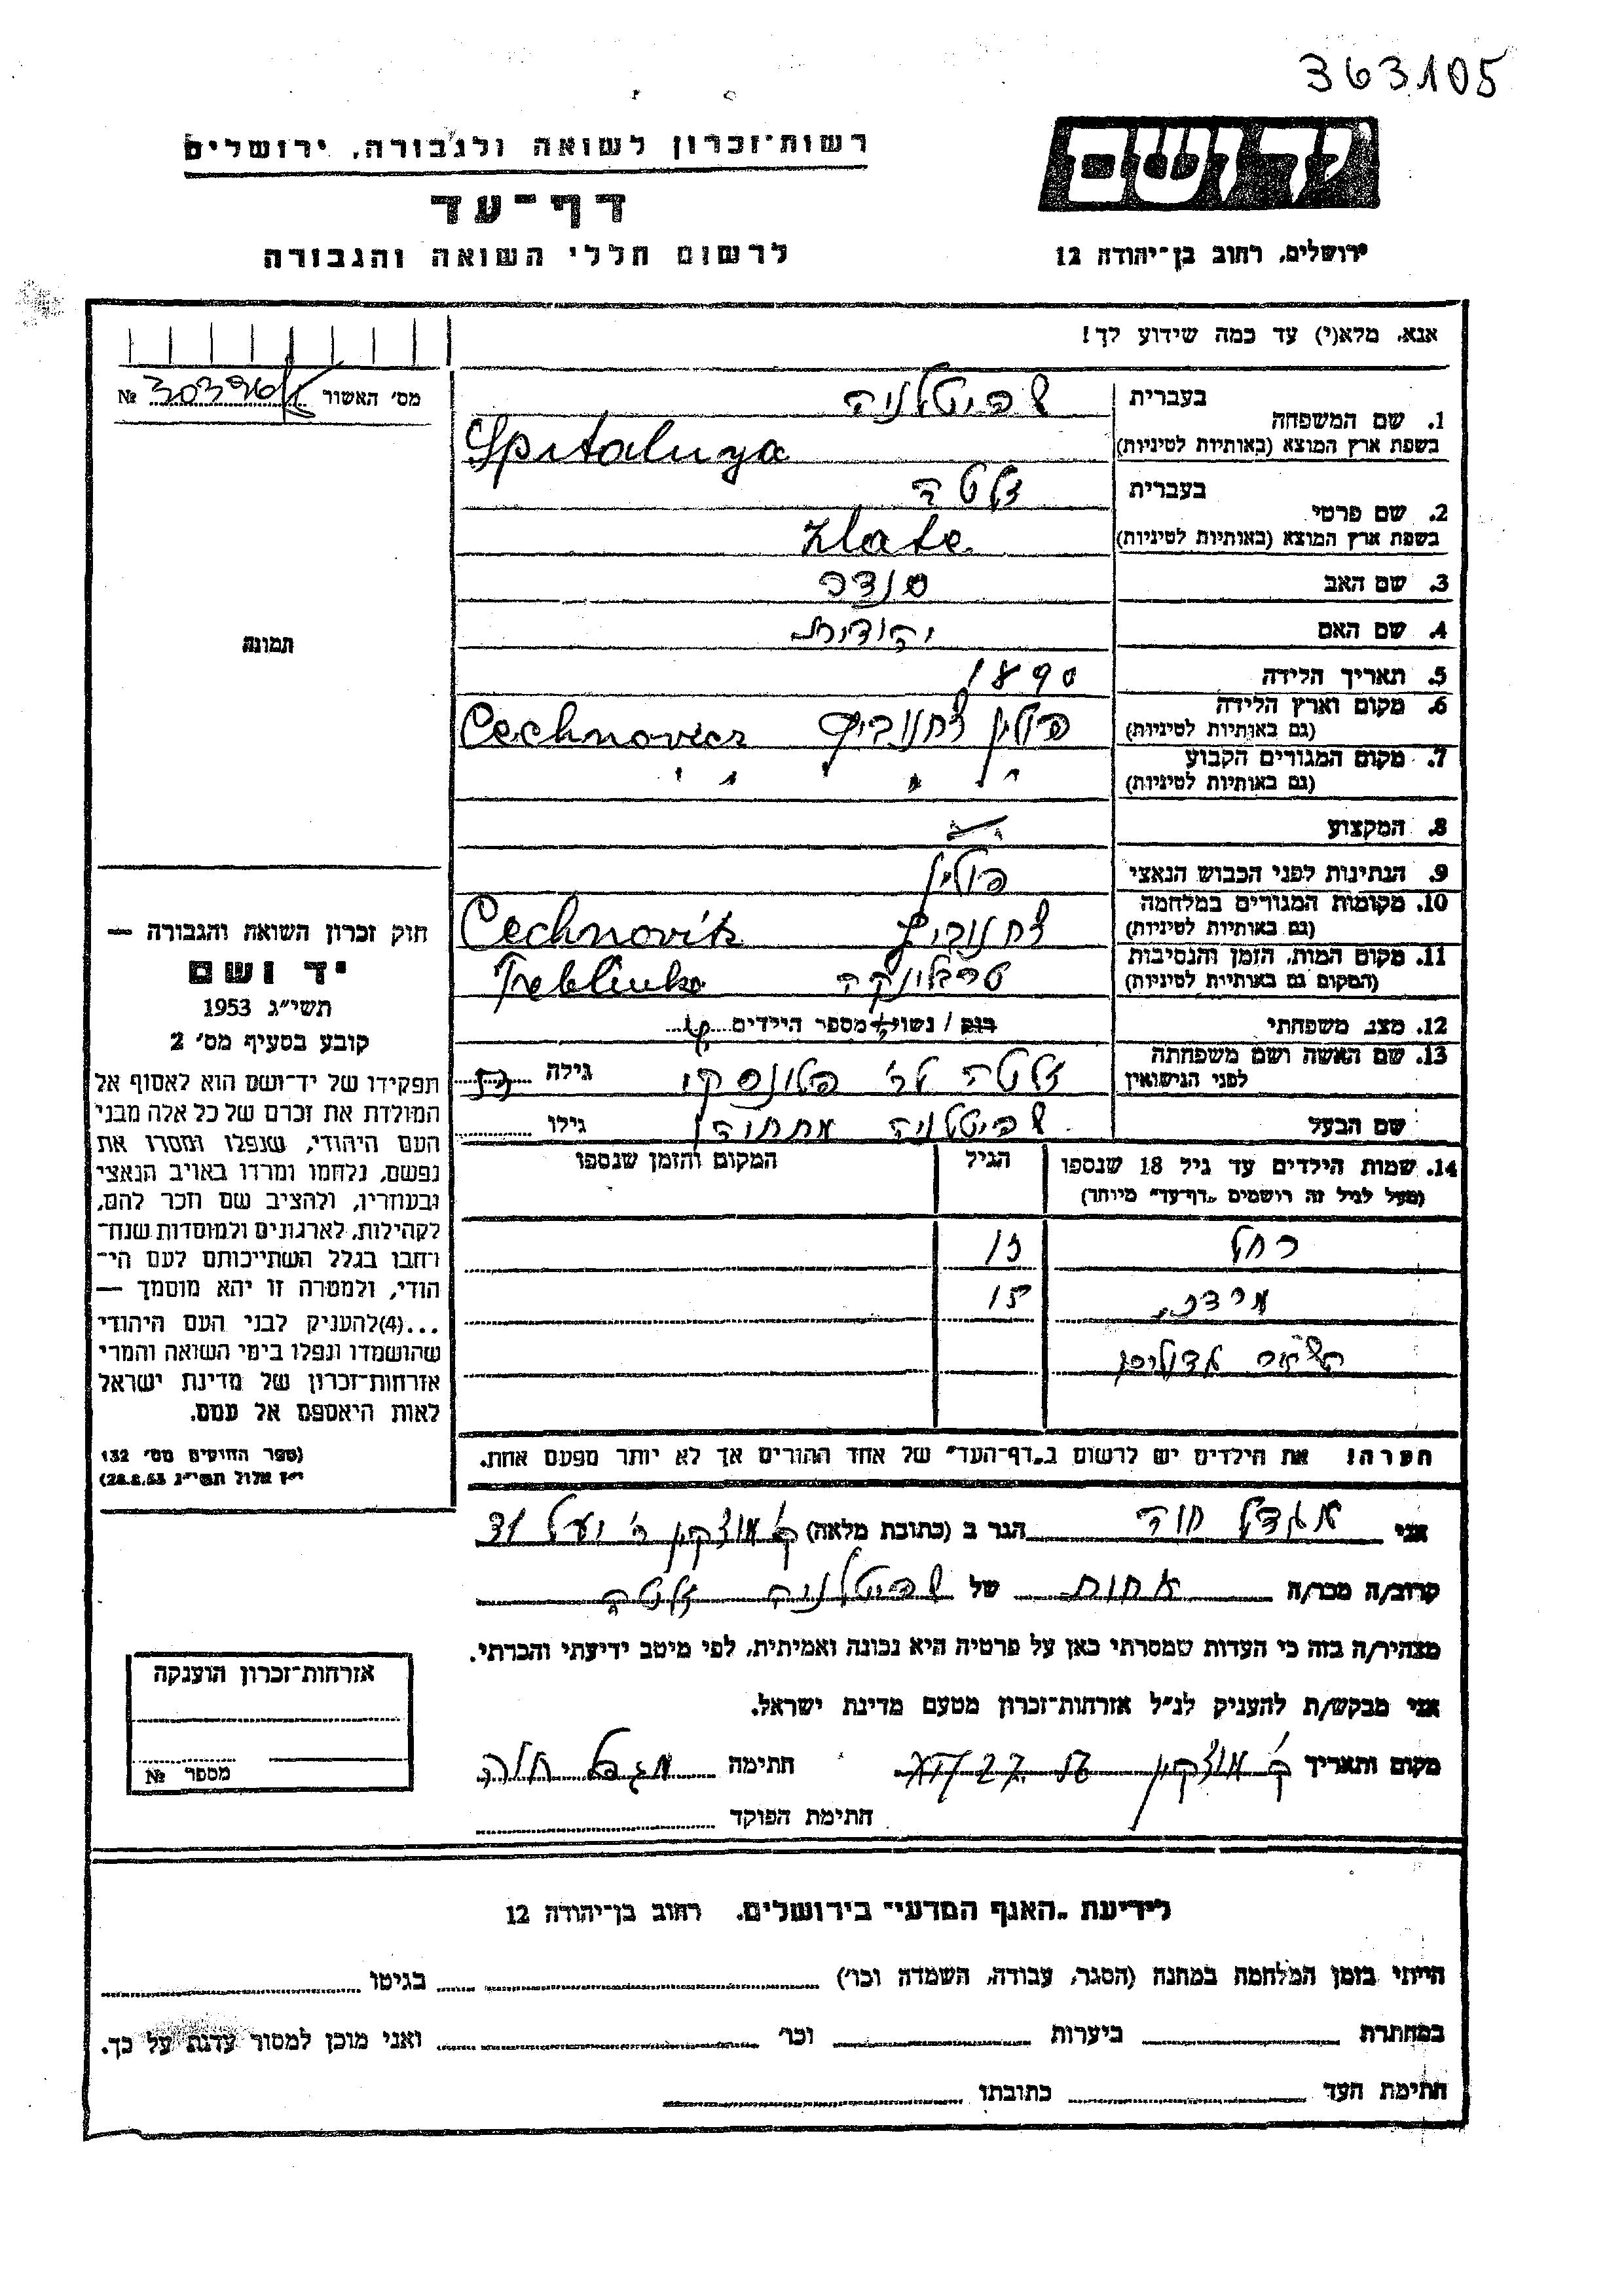 363105
יד ושם
רשות־זכרון לשואה ולגבורה, ירושלים
דף־עד
לרשום חללי השואה והגבורה
ירושלים, רחוב בן־יהודה 12
אנא, מלא(י) עד כמה שידוע לך!
מס׳ האשור № 
1. שם המשפחה
בעברית שפיטלניה
בשפת ארץ המוצא (באותיות לטיניות) Spitalnya
2. שם פרטי
בעברית זלטה
בשפת ארץ המוצא (באותיות לטיניות) Zlate
3. שם האב סנדר
4. שם האם יהודית
5. תאריך הלידה 1890
6. מקום וארץ הלידה (גם באותיות לטיניות) פולין צחנוביץ Cechnovicz
7. מקום המגורים הקבוע (גם באותיות לטיניות) " " " " "
8. המקצוע
9. הנתינות לפני הכבוש הנאצי פולין
10. מקומות המגורים במלחמה (גם באותיות לטיניות) צחנוביץ Cechnovitz
11. מקום המות, הזמן והנסיבות (המקום גם באותיות לטיניות) טרבלינקה Treblinka
12. מצב משפחתי רווק / נשוי מספר הילדים
13. שם האשה ושם משפחתה לפני הנישואין זלטה לב׳ פלונסקי גילה
שם הבעל שפיטלניה גילו
14. שמות הילדים עד גיל 18 שנספו הגיל המקום והזמן שנספו
(מעל לגיל זה רושמים „דף־עד״ מיוחד)
רחל 13
מרדכי 15
הערה! את הילדים יש לרשום ב„דף־העד״ של אחד ההורים אך לא יותר מפעם אחת.
תמונה
חוק זכרון השואה והגבורה —
יד ושם
תשי״ג 1953
קובע בסעיף מס׳ 2
תפקידו של יד־ושם הוא לאסוף אל
המולדת את זכרם של כל אלה מבני
העם היהודי, שנפלו ומסרו את
נפשם, נלחמו ומרדו באויב הנאצי
ובעוזריו, ולהציב שם וזכר להם,
לקהילות, לארגונים ולמוסדות שנח־
רבו בגלל השתייכותם לעם הי־
הודי, ולמטרה זו יהא מוסמך —
...(4)להעניק לבני העם היהודי
שהושמדו ונפלו בימי השואה והמרי
אזרחות־זכרון של מדינת ישראל
לאות היאספם אל עמם.
(ספר החוקים מס׳ 132
י״ז אלול תשי״ג 28.8.53)
אני חוה הגר ב (כתובת מלאה) ק׳ מוצקין
קרוב/ה מכר/ה אחות של שפיטלניה זלטה
מצהיר/ה בזה כי העדות שמסרתי כאן על פרטיה היא נכונה ואמיתית, לפי מיטב ידיעתי והכרתי.
אני מבקש/ת להעניק לנ״ל אזרחות־זכרון מטעם מדינת ישראל.
מקום ותאריך ק׳ מוצקין חתימה חוה
חתימת הפוקד
אזרחות־זכרון הוענקה
מספר №
לידיעת „האגף המדעי״ בירושלים, רחוב בן־יהודה 12
הייתי בזמן המלחמה במחנה (הסגר, עבודה, השמדה וכו׳) בגיטו
במחתרת ביערות וכו׳ ואני מוכן למסור עדות על כך.
חתימת העד כתובתו